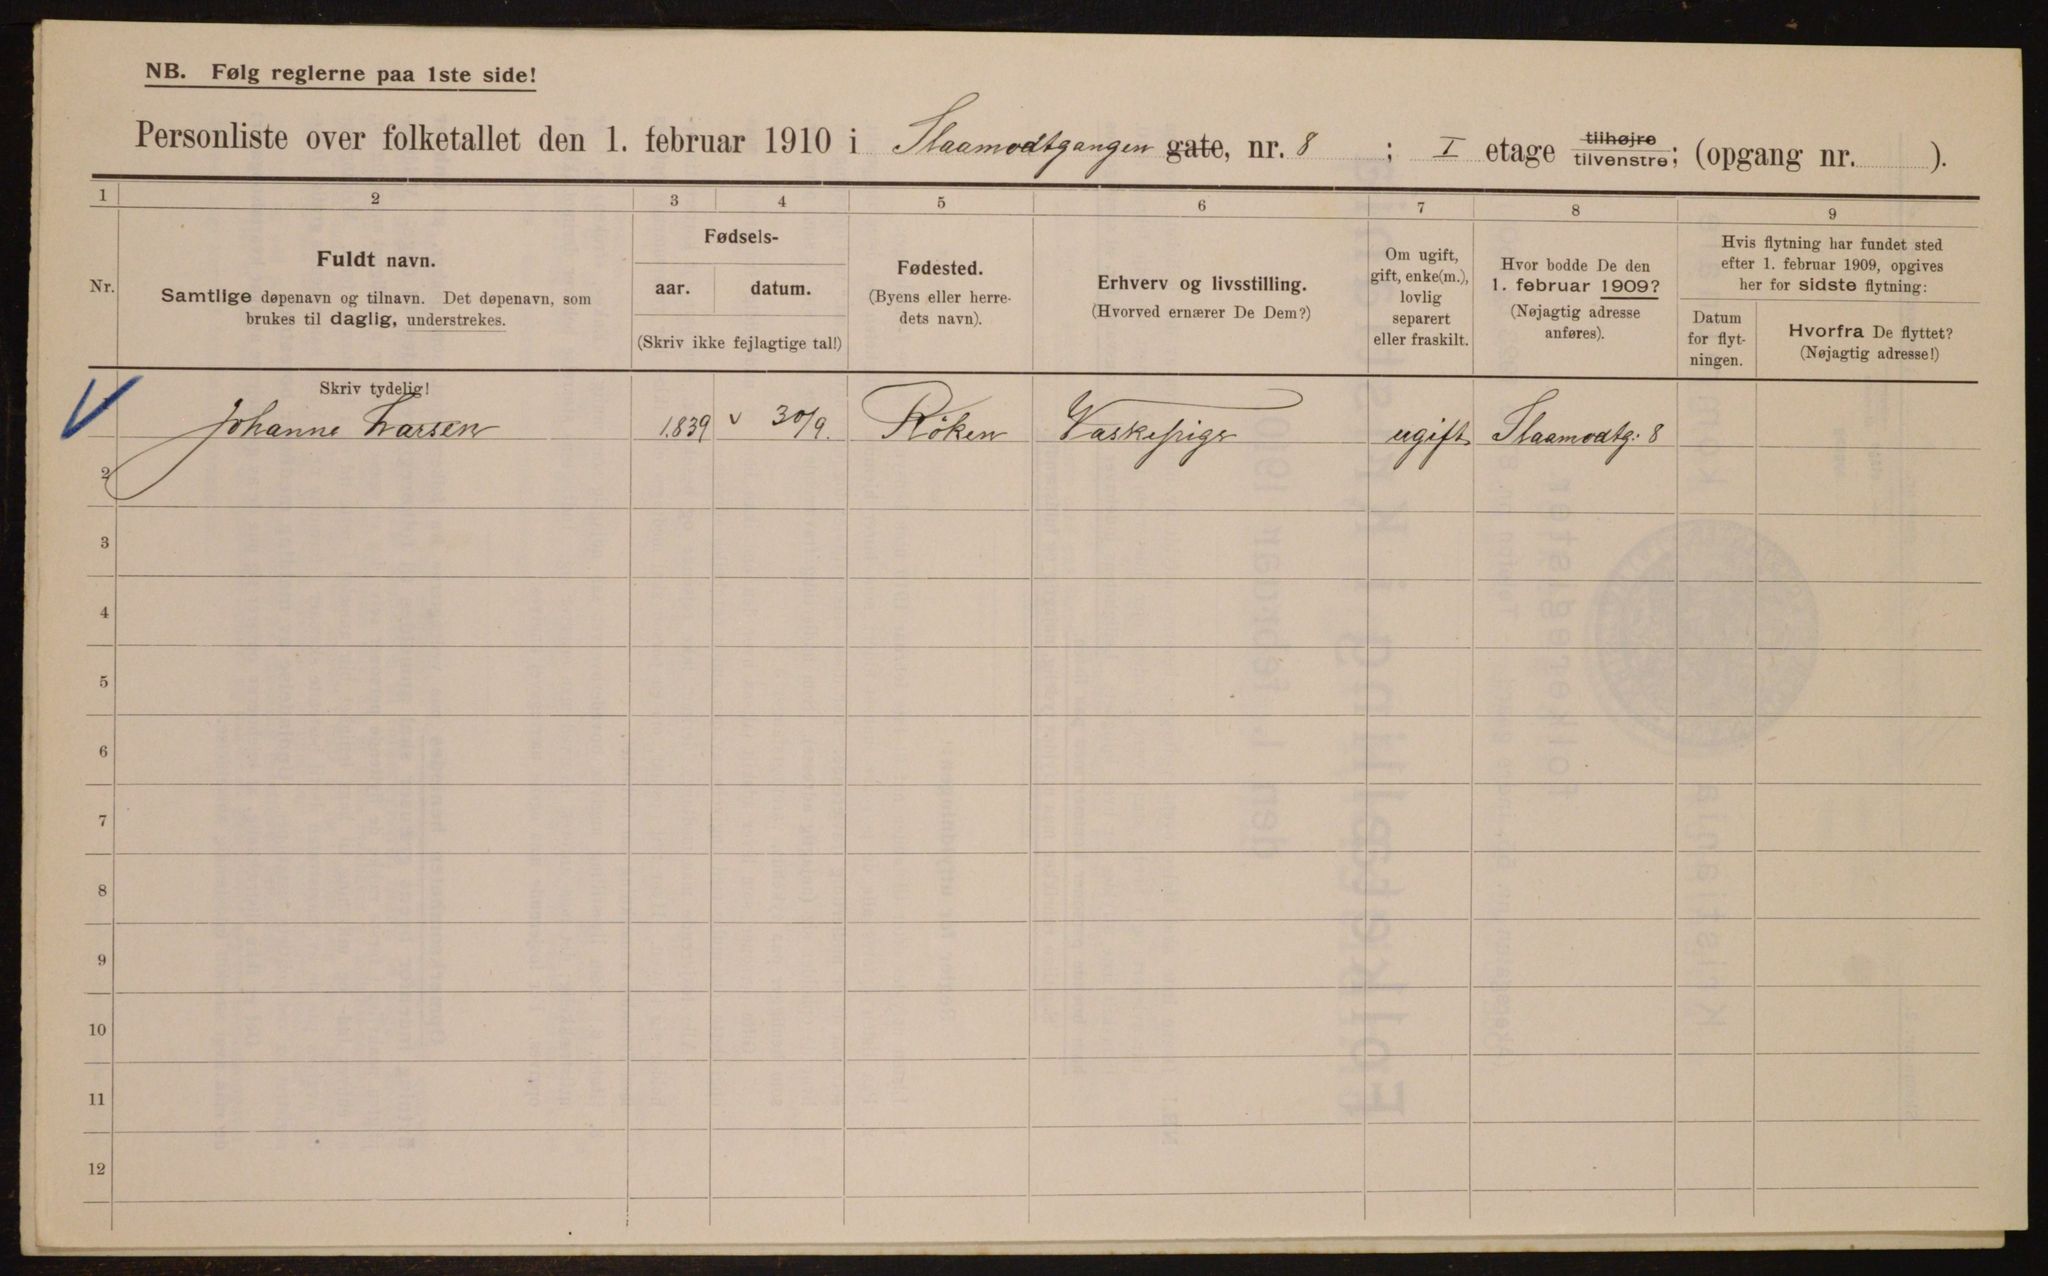 NB. Følg reglerne paa 1ste side!
Personliste over folketallet den 1. februar 1910 i Staamodtgangen gate, nr. 8 ; I etage tilhøjre tilvenstre; (opgang nr. ).
1 2 3 4 5 6 7 8 9
Nr.
Fuldt navn.
Samtlige døpenavn og tilnavn. Det døpenavn, som
brukes til daglig, understrekes.
Fødsels-
aar. datum.
(Skriv ikke fejlagtige tal!)
Fødested.
(Byens eller herre-
dets navn).
Erhverv og livsstilling.
(Hvorved ernærer De Dem?)
Om ugift,
gift, enke(m.),
lovlig
separert
eller fraskilt.
Hvor bodde De den
1. februar 1909?
(Nøjagtig adresse
anføres).
Hvis flytning har fundet sted
efter 1. februar 1909, opgives
her for sidste flytning:
Datum
for flyt-
ningen.
Hvorfra De flyttet?
(Nøjagtig adresse!)
Skriv tydelig!
Johanne Larsen 1839 v 30/9. Röken Vaskepige ugift Staamodtg: 8
2
3
4
5
6
7
8
9
10
11
12